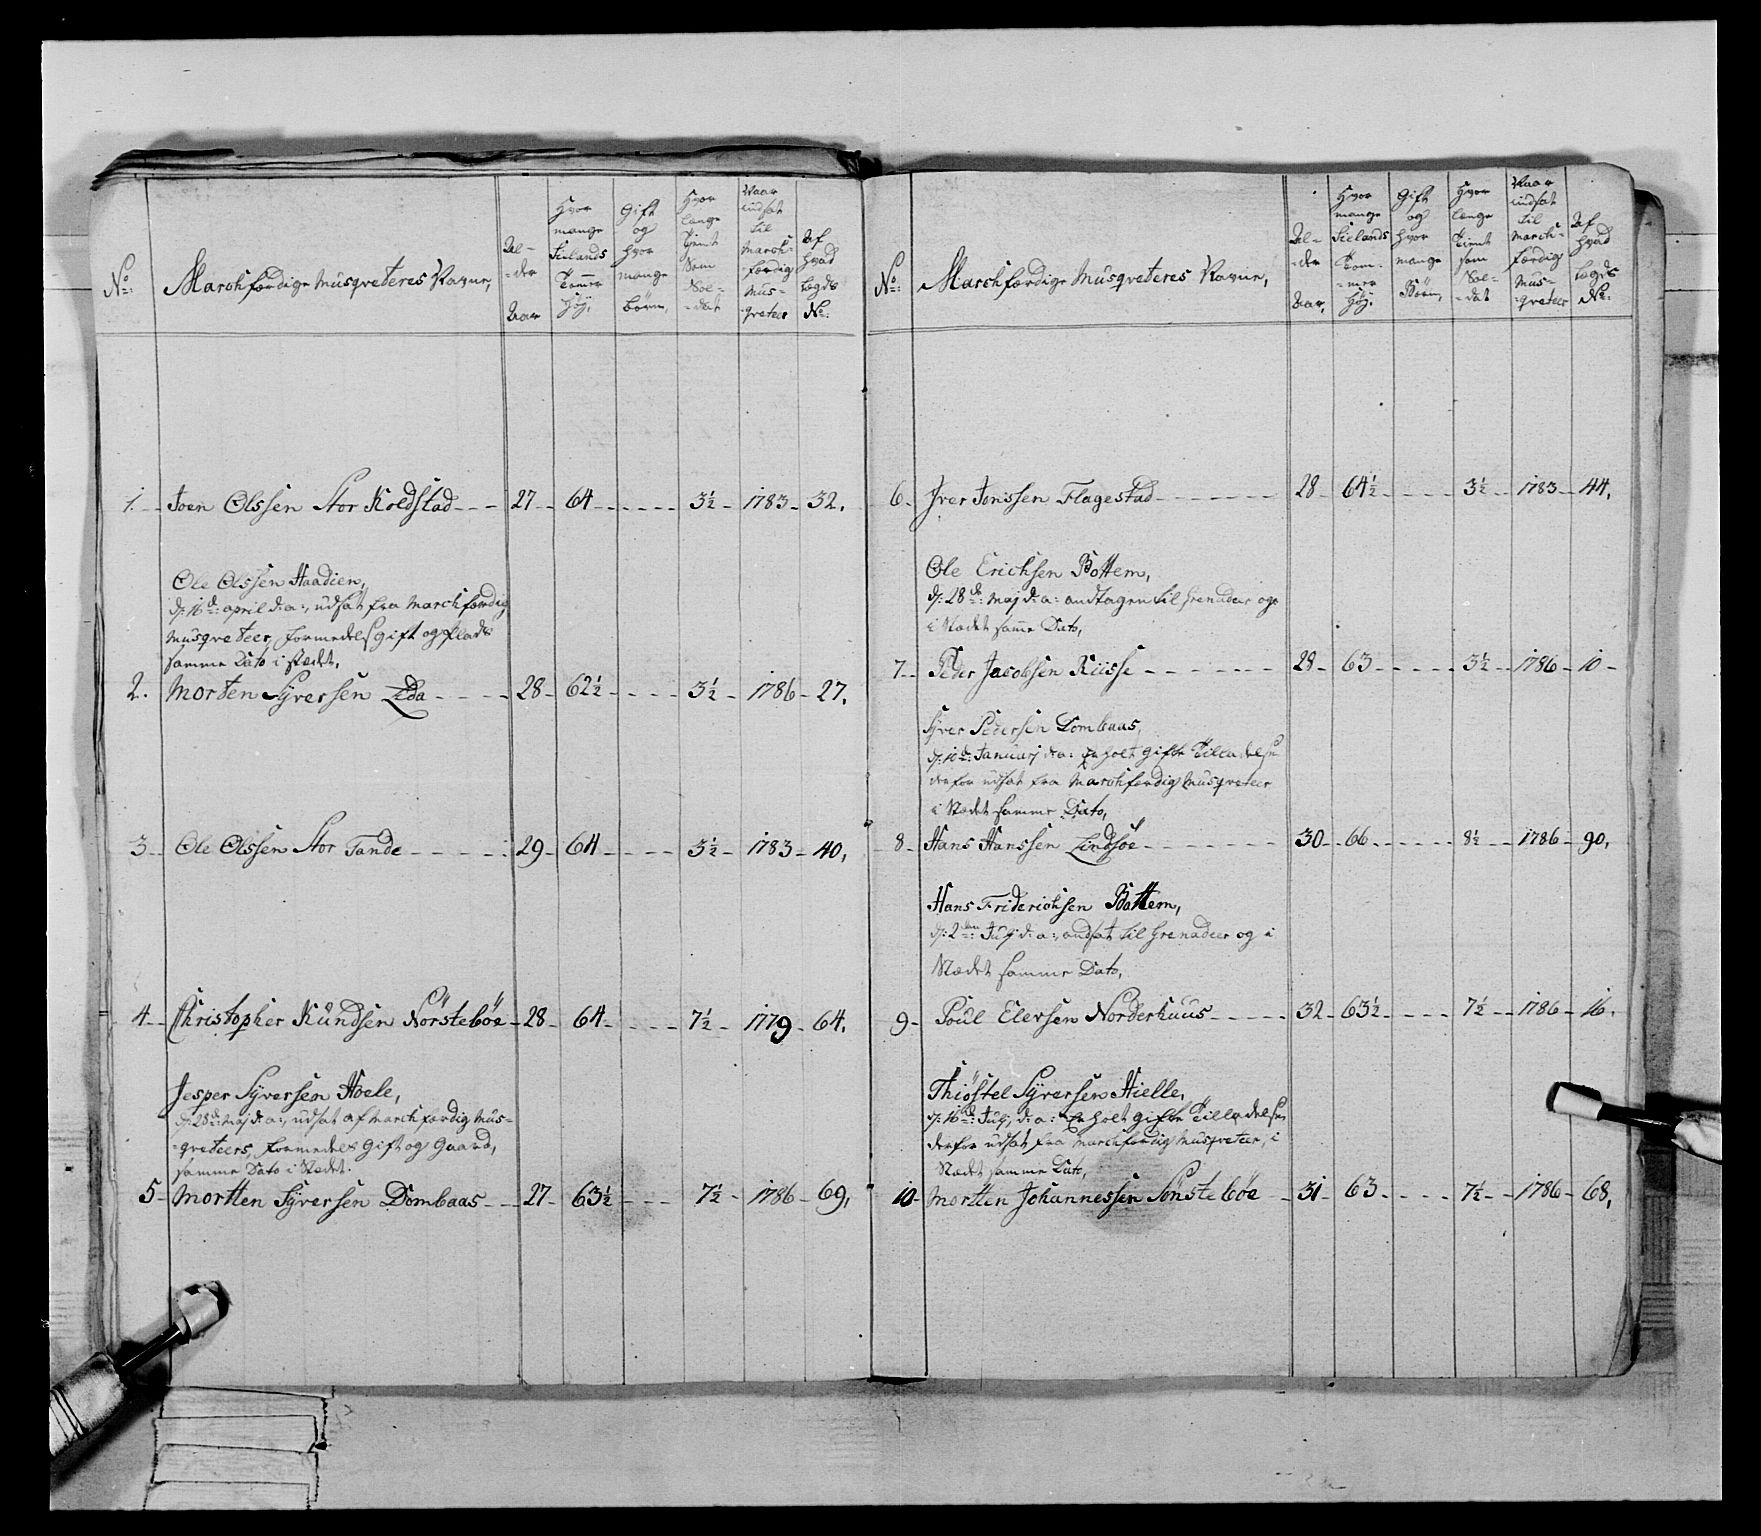 No:
Marchfærdige Musqveteres Navne,
Al-
-der
Aar
Hvor
mange
Sielands
Tom̄er
Høy,
Gift
og
hvor
mange
børn,
Hvor
længe
tient
som
Sol-
-dat
Naar
indsat
til
March-
færdig
Mus-
-qveteer
Af
hvad
Lægds
No:
1. Joen Olssen Stor Koldstad 27 64 3½ 1783 32.
Ole Olssen Haadien,
d: 16de: april d: a:, udsat fra Marchfærdig
Musqveteer, formedelst gift og plads
samme Dato i stædet,
2. Morten Syversen Lda 28 62½ 3½ 1786 27.
3 Ole Olssen Stor Tande 29 64 3½ 1783 40,
4 Christopher Knudsen Nörsteböe 28 64 7½ 1779 64.
Jesper Syversen Hoele,
d: 28de: Maj d: a:, udsat af Marchfærdig Mus-
-qveteers, formedelst Gift og Gaard,
samme Dato i Stædet.
5 Mortten Syversen Dombaas 27 63½ 7½ 1786 69,
No:
Marchfærdige Musqveteres Navne,
Al-
-der
Aar,
Hvor
mange
Sielands
Tom-
-mer
Høy.
Gift
og
hvor
mange
Börn,
Hvor
længe
tient
som
Sol-
-dat
Naar
indsat
til
March-
færdig
Mus-
-qveteer
Af
hvad
Lægds
No:
6 Iver Jonssen Flagestad 28 64½ 3½ 1783 44,
Ole Erichsen Bottem,
d: 28de: Maj d: a: andtagen til Grenadeer og
i Stædet sam̄e Dato,
7 Peder Jacobsen Kiisse 28 63 3½ 1786 10
Syver Pedersen Dombaas,
d: 10de: Januarj d: a: Erholt Gifte Tilladelse
derfor udsat fra Marchfærdig Musqveteer
i Stædet samme Dato,
8 Hans Hanssen Lindsöe 30 66 8½ 1786 90,
Hans Friderichsen Bottem,
d: 2den: Julj d: a:, andsat til Grenadeer og i
Stædet samme Dato,
9 Poul Elevsen Norderhuus 32 63½ 7½ 1786 16.
Thiöstel Syversen Hielle,
d: 16de: Julj d: a: Erholt Gifte Tilladelse
derfor udsat fra Marchfærdig Musqveteer, i
Stædet samme Dato,
10 Mortten Johannessen Sönsteböe 31 63 7½ 1786 68,